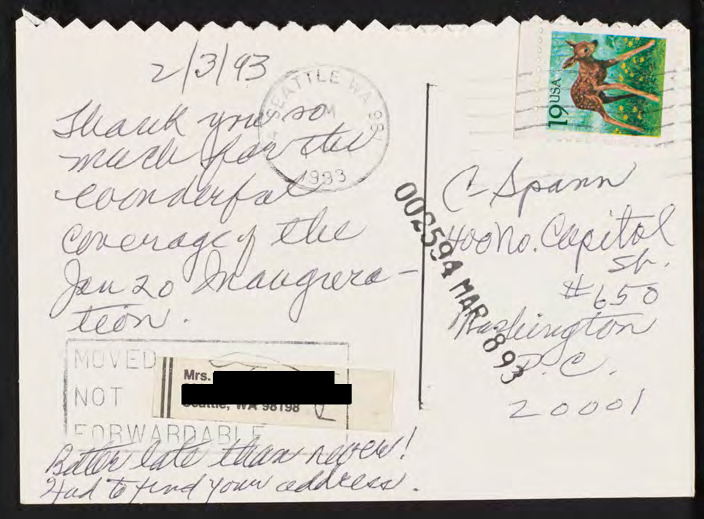 2/3/93
SEATTLE WA 981
M
1993
19USA
Thank you so
much for the
wonderful
coverage of the
Jan 20 Inaugera-
tion.
C Spann
400 No. Capitol
St.
#650
Washington
D.C.
20001
002594 MAR 893
MOVED
NOT
FORWARDABLE
Mrs.
Seattle, WA 98198
Better late than never!
Had to find your address.